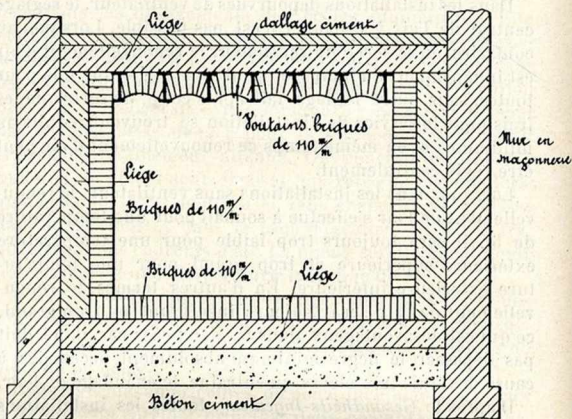 Liège
dallage ciment
Voutains briques
de 110 m/m
Mur en
maçonnerie
Liège
Briques de 110 m/m
Briques de 110 m/m
Liège
Béton ciment